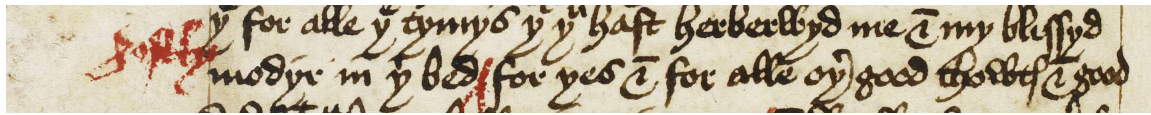 yͤ for alle yͤ tymys yͭ yͧ hast herberwyd me & my blissyd
modyr in yͥ bed / for yes & for alle oy̛ good thowtꝭ & good